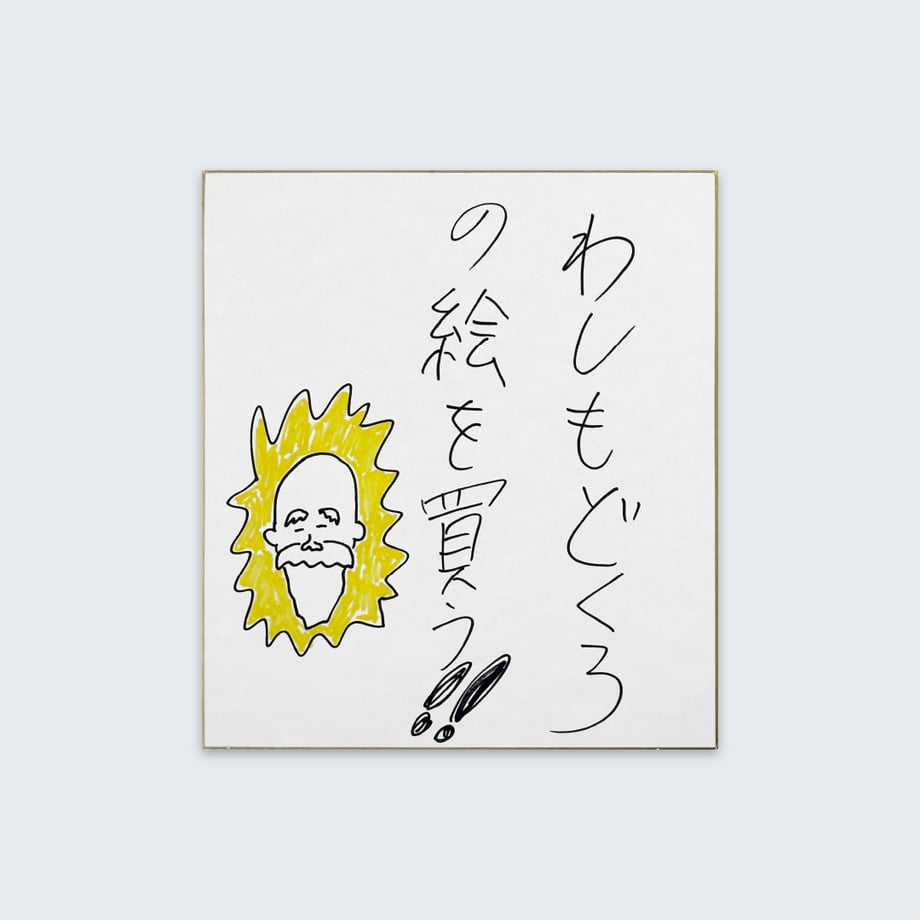 わしもどくろ
の絵を買う!!